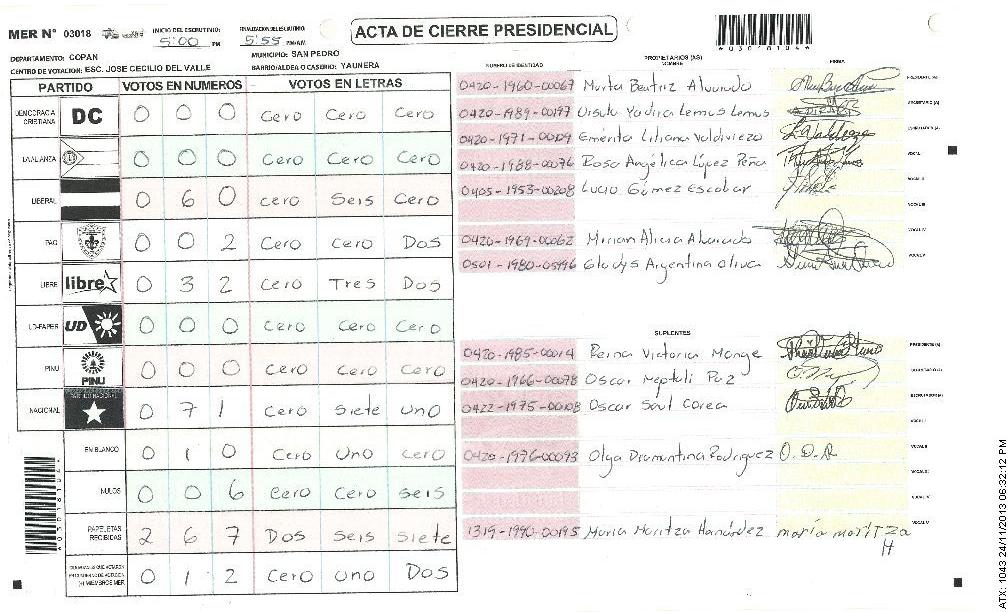 MER N° 03018 INICIO DEL ESCRUTINIO: 5:00 PM FINALIZACION DEL ESCRUTINIO: 5:55 PM/AM
ACTA DE CIERRE PRESIDENCIAL
DEPARTAMENTO: COPAN MUNICIPIO: SAN PEDRO
CENTRO DE VOTACION: ESC. JOSE CECILIO DEL VALLE BARRIO/ALDEA O CASERIO: YAUNERA
PARTIDO VOTOS EN NUMEROS VOTOS EN LETRAS
DEMOCRACIA CRISTIANA DC 0 0 0 Cero Cero Cero
LA ALIANZA 0 0 0 Cero Cero Cero
LIBERAL 0 6 0 Cero Seis Cero
PAC 0 0 2 Cero Cero Dos
LIBRE libre 0 3 2 Cero Tres Dos
UD-FAPER UD 0 0 0 Cero Cero Cero
PINU PINU 0 0 0 Cero Cero Cero
NACIONAL PARTIDO NACIONAL 0 7 1 Cero Siete Uno
EN BLANCO 0 1 0 Cero Uno Cero
NULOS 0 0 6 Cero Cero Seis
PAPELETAS RECIBIDAS 2 6 7 Dos Seis Siete
MIEMBROS MER 0 1 2 Cero Uno Dos
NUMERO DE IDENTIDAD PROPIETARIOS (AS) NOMBRE FIRMA
0420-1960-00067 Mirta Beatriz Alvarado PRESIDENTE (A)
0420-1989-00197 Yadira Lemus Lemus SECRETARIO (A)
0420-1971-00109 Emérita Liliana Valdiviezo ESCRUTADOR (A)
0420-1988-00076 Rosa Angélica López Peña VOCAL I
0405-1953-00208 Lucio Gómez Escobar VOCAL II
VOCAL III
0420-1969-00062 Mirian Alicia Alvarado VOCAL IV
0501-1980-05996 Gladys Argentina Oliva VOCAL V
SUPLENTES
0420-1985-00014 Reina Victoria Monge PRESIDENTE (A)
0420-1966-00078 Oscar Neptali Paz SECRETARIO (A)
0422-1975-00108 Oscar Saul Corea ESCRUTADOR (A)
VOCAL I
0420-1976-00093 Olga Diamantina Rodriguez O.D.R VOCAL II
VOCAL III
VOCAL IV
1319-1990-00195 Maria Maritza Hernández maria maritza H VOCAL V
ATX: 1043 24/11/2013 06:32:12 PM